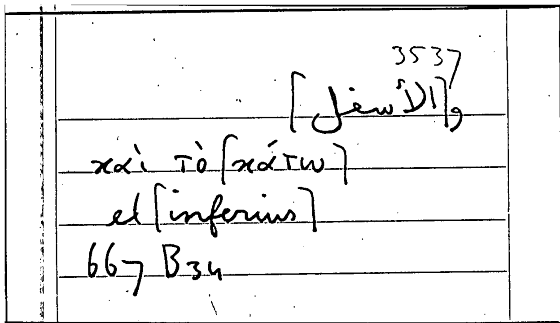 3537
و[الأسفل]
καὶ τὸ [κάτω]
et [inferius]
667 B34